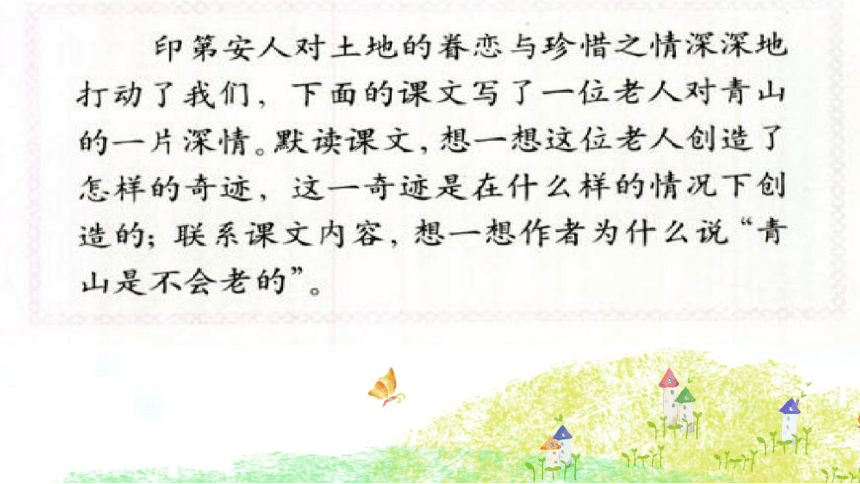 印第安人对土地的眷恋与珍惜之情深深地
打动了我们，下面的课文写了一位老人对青山
的一片深情。默读课文，想一想这位老人创造了
怎样的奇迹，这一奇迹是在什么样的情况下创
造的；联系课文内容，想一想作者为什么说“青
山是不会老的”。